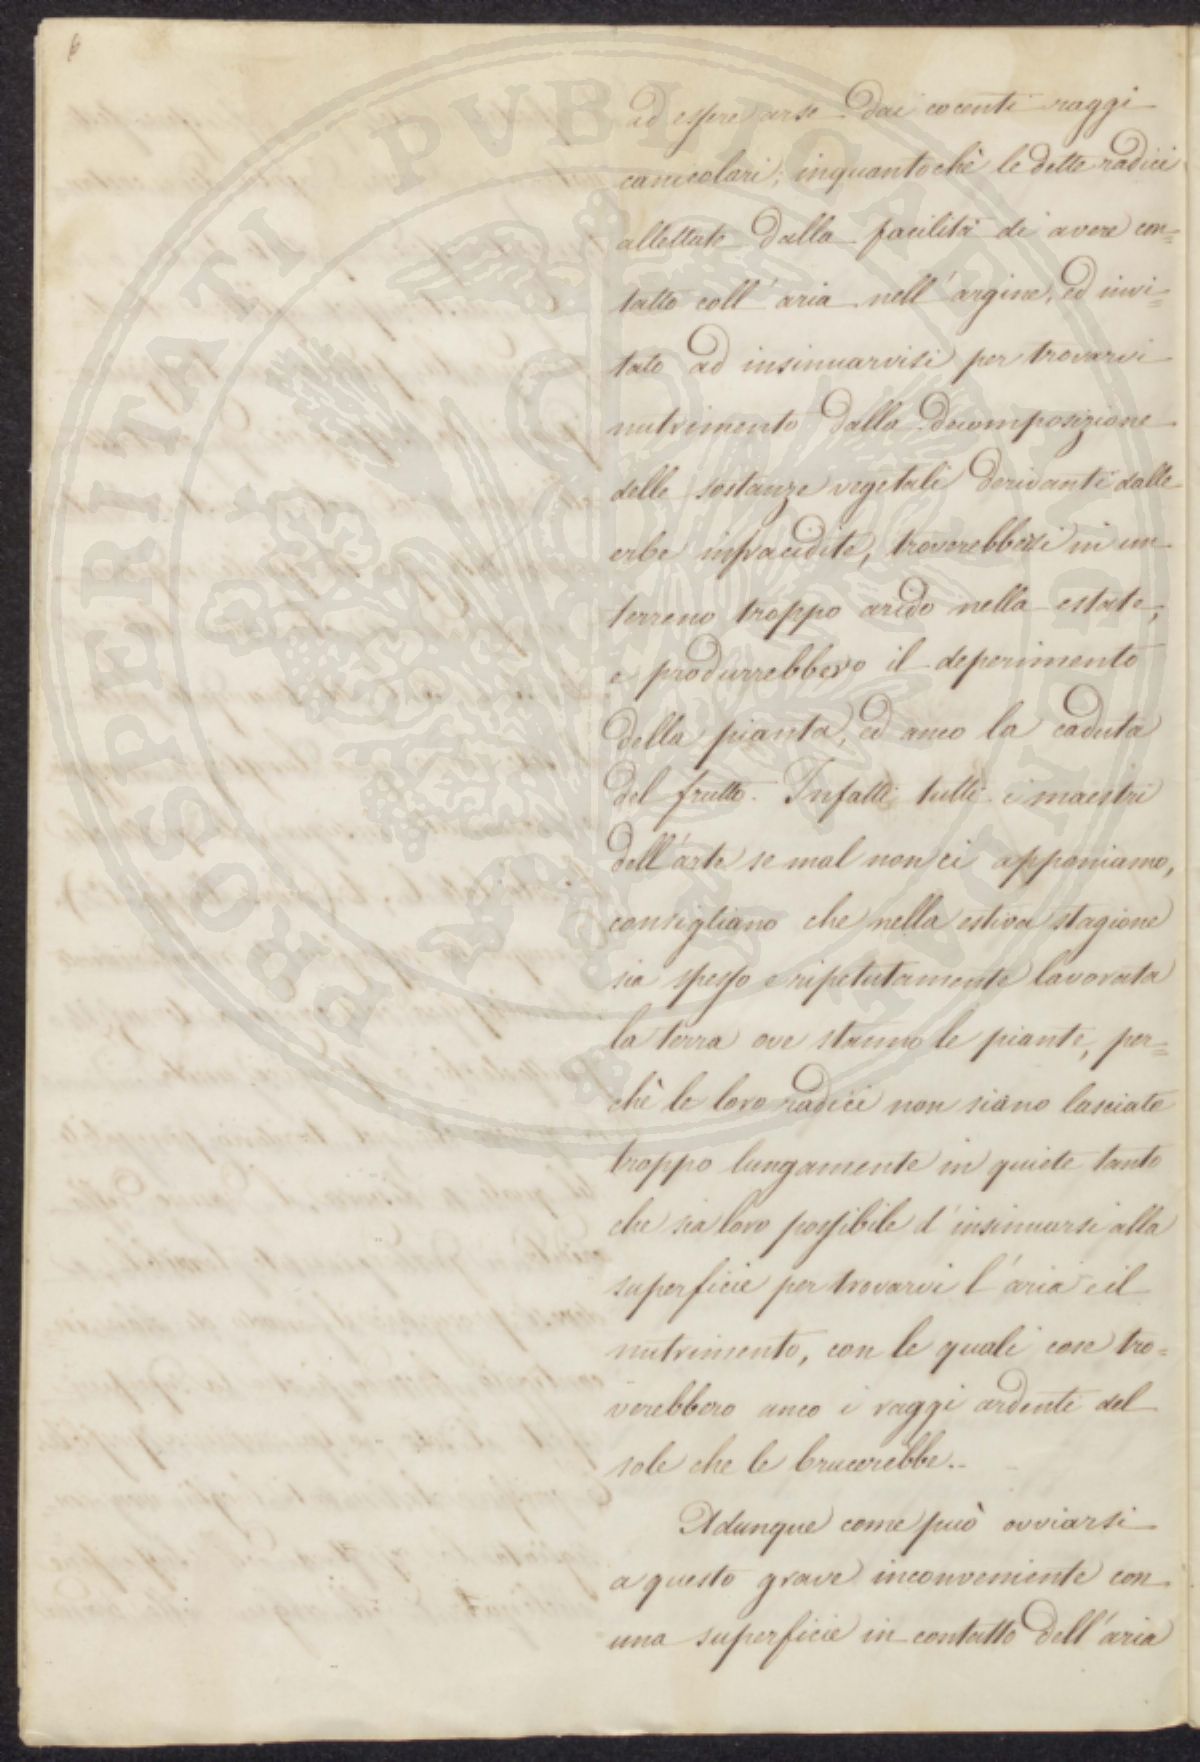 6
ad essere arse dai cocenti raggi
canicolari; inquantochè le dette radici
allettate dalla facilità di avere con=
tatto coll'aria nell'argine, ed invi=
tate ad insinuarvisi per trovarvi
nutrimento dalla decomposizione
delle sostanze vegetali derivanti dalle
erbe infracidite, troverebbersi in un
terreno troppo arido nella estate,
e produrrebbero il deperimento
della pianta, ed anco la caduta
del frutto. Infatti tutti i maestri
dell'arte se mal non ci apponiamo,
consigliano che nella estiva stagione
sia spesso e ripetutamente lavorata
la terra ove stanno le piante, per=
chè le loro radici non siano lasciate
troppo lungamente in quiete tanto
che sia loro possibile d'insinuarsi alla
superficie per trovarvi l'aria e il
nutrimento, con le quali cose tro=
verebbero anco i raggi ardenti del
sole che le brucerebbe.
Adunque come può ovviarsi
a questo grave inconveniente con
una superficie in contatto dell'aria
PROSPERITATI PUBLICAE AUGENDAE